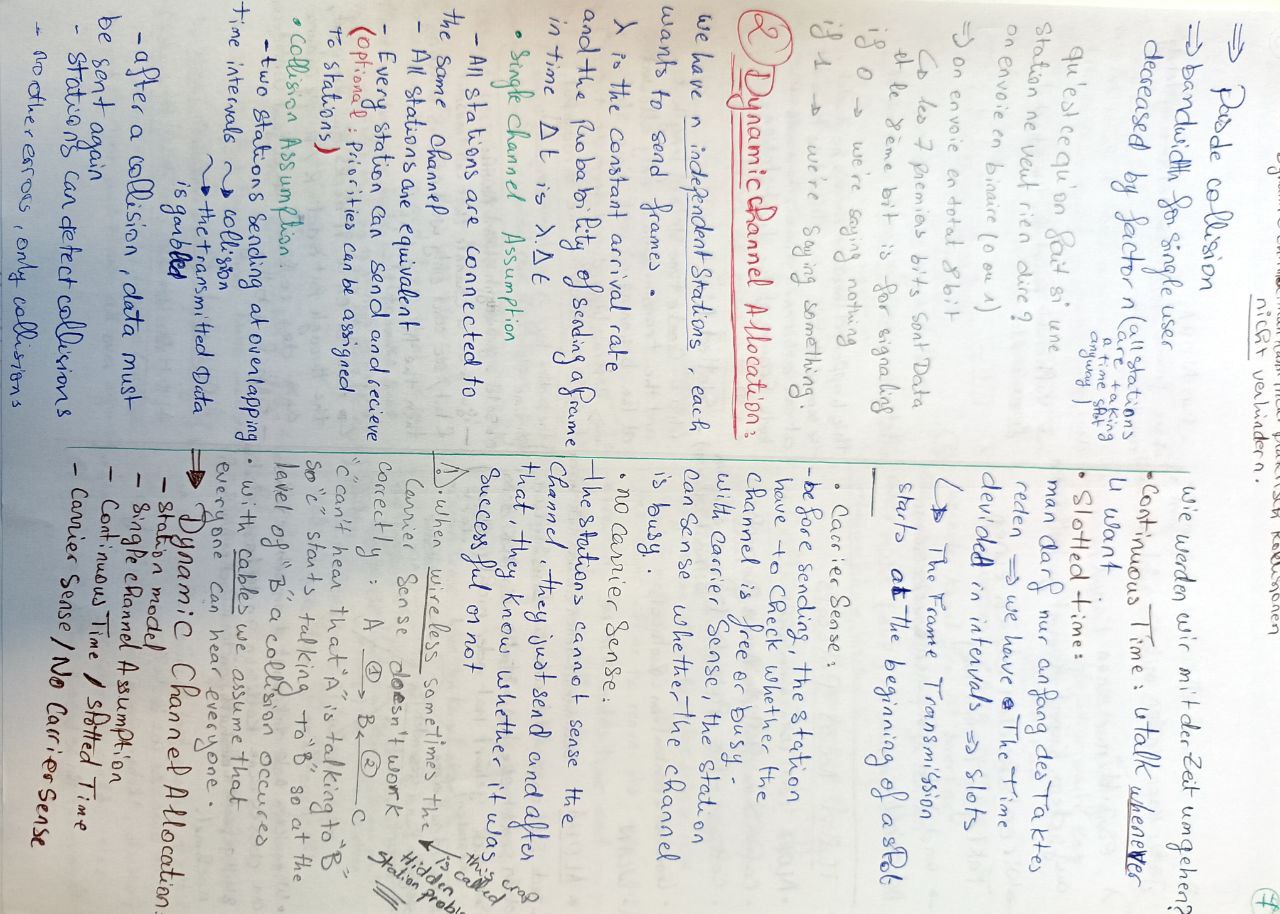 nicht verhindern.
7
⇒ Pas de collision
⇒ bandwidth for single user
decreased by factor n (all stations
are taking
a time slot
anyway)
qu'est ce qu'on fait si une
station ne veut rien dire?
on envoie en binaire (0 ou 1)
⇒ on envoie en total 8 bit
↳ les 7 premiers bits sont Data
et le 8ème bit is for signaling
if 0 → we're saying nothing
if 1 → we're saying something.
② Dynamic channel Allocation:
we have n independent stations, each
wants to send frames.
λ is the constant arrival rate
and the probability of sending a frame
in time Δt is λ.Δt
• Single channel Assumption
- All stations are connected to
the same channel
- All stations are equivalent
- Every station can send and recieve
(Optional: Priorities can be assigned
to stations)
• Collision Assumption:
- two stations sending at overlapping
time intervals ⤳ collision
⤳ the transmitted Data
is garbled
- after a collision, data must
be sent again
- Stations can detect collisions
- no other errors, only collisions
wie werden wir mit der Zeit umgehen?
• Continuous Time: u talk whenever
u want.
• Slotted time:
man darf nur anfang des Taktes
reden ⇒ we have The Time
devided in intervals ⇒ slots
↳ The Frame Transmission
starts at the beginning of a slot
• Carrier Sense:
- before sending, the station
have to check whether the
channel is free or busy.
with carrier sense, the station
can sense whether the channel
is busy.
• no carrier sense:
the stations cannot sense the
channel, they just send and after
that, they know whether it was
successful or not
⚠. when wireless sometimes the
Carrier Sense doesn't work
correctly: A ①→ B ←② C
this crap
is called
Hidden
station
"C" can't hear that "A" is talking to "B"
so "C" starts talking to "B" so at the
level of "B" a collision occures
• with cables we assume that
everyone can hear everyone.
⇒ Dynamic Channel Allocation.
- Station model
- Single channel Assumption
- Continuous Time / Slotted Time
- Carrier Sense / No Carrier Sense